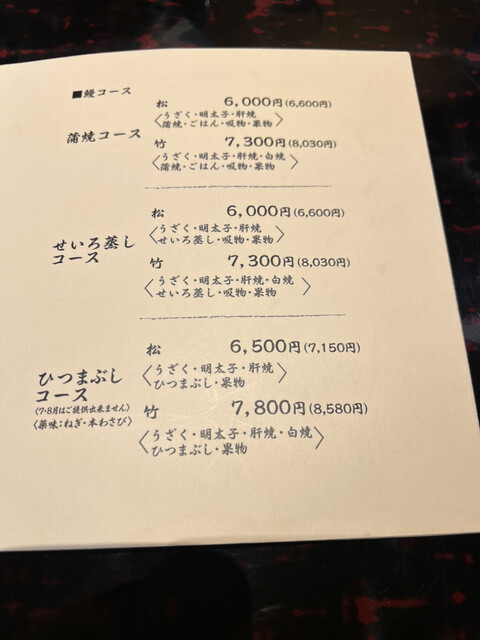 ■鰻コース
蒲焼コース
松 6,000円(6,600円)
〈うざく・明太子・肝焼
蒲焼・ごはん・吸物・果物〉
竹 7,300円(8,030円)
〈うざく・明太子・肝焼・白焼
蒲焼・ごはん・吸物・果物〉
せいろ蒸し
コース
松 6,000円(6,600円)
〈うざく・明太子・肝焼
せいろ蒸し・吸物・果物〉
竹 7,300円(8,030円)
〈うざく・明太子・肝焼・白焼
せいろ蒸し・吸物・果物〉
ひつまぶし
コース
〈7・8月はご提供出来ません〉
〈薬味:ねぎ・本わさび〉
松 6,500円(7,150円)
〈うざく・明太子・肝焼
ひつまぶし・果物〉
竹 7,800円(8,580円)
〈うざく・明太子・肝焼・白焼
ひつまぶし・果物〉